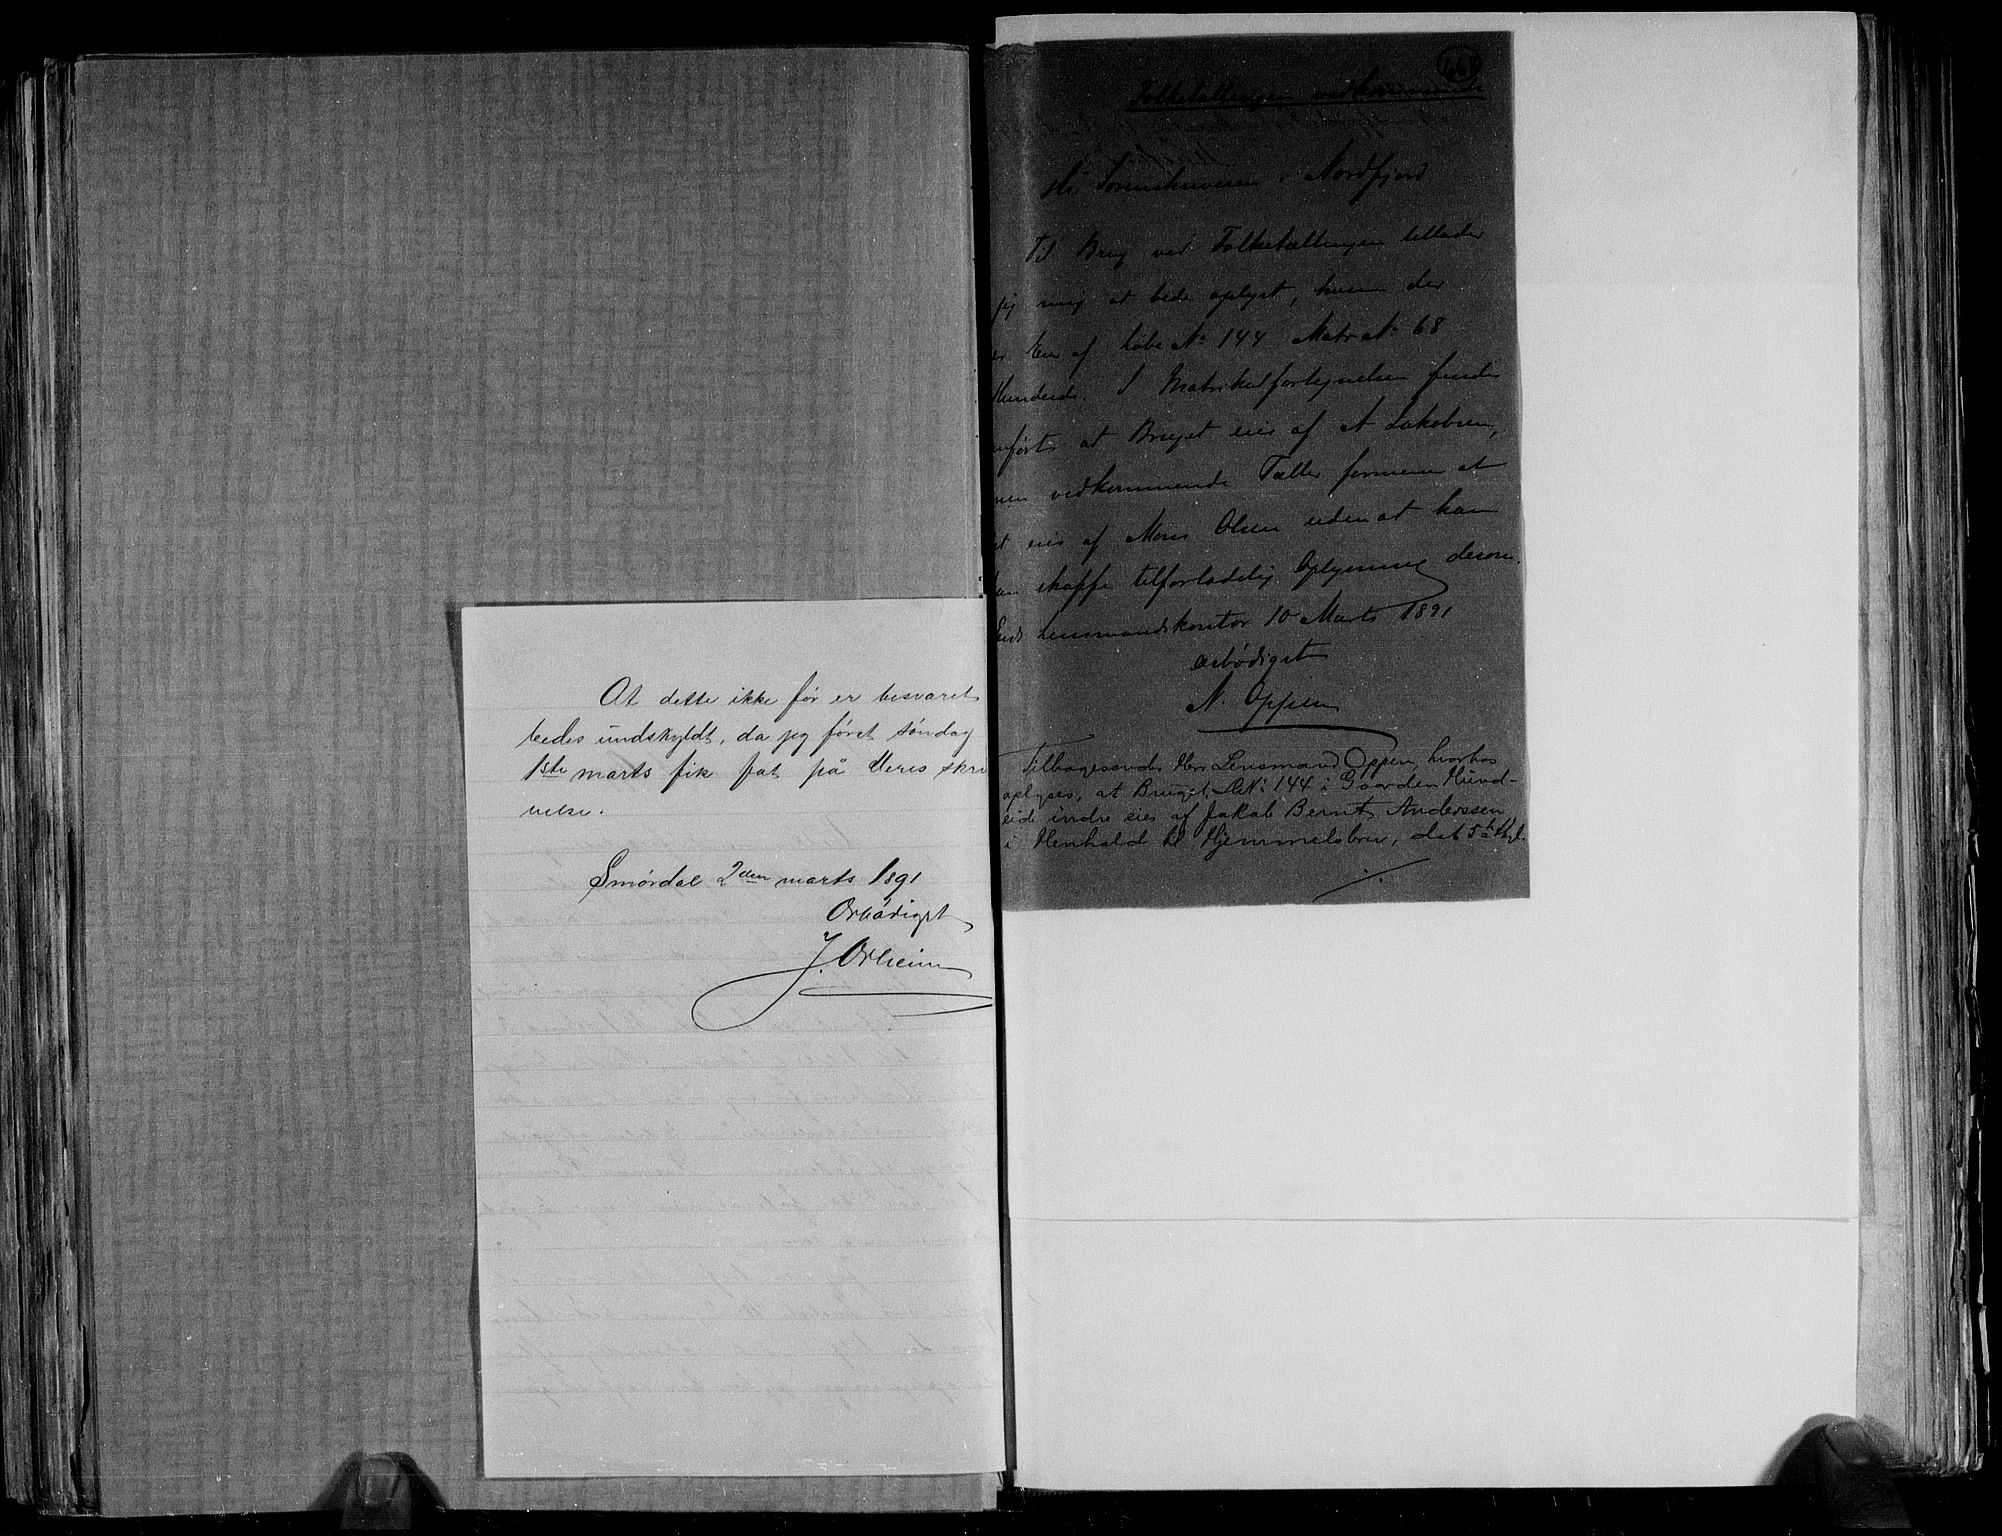 At dette ikke før er besvaret
bedes undskyldt, da jeg først søndag
1ste marts fik fat på Deres skri
velse.
Smørdal 2den marts 1891
Ærbødigst
J. Orheim
Folketællingen vedkommende
Hr. Sorenskriveren i Nordfjord
Til Brug ved Folketællingen tillader
jeg mig at bede oplyst, hvem der
er Eier af Løbe No 144 Matr No 68
Hundeide. I Matrikulfortegnelsen findes
anført at Bruget eies af A Jakobsen,
men vedkommende Tæller formener at
det eies af Mons Olsen uden at han
kan skaffe tilforladelig Oplysning derom.
Lensmandskontor 10 Marts 1891
ærbødigst
N. Oppen
Tilbagesendes Hr. Lensmand Oppen, hvorhos
oplyses, at Bruget, LNo 144 i Gaarden Hund-
eide indre eies af Jakob Bernt Anderssen
i Henhold til Hjemmelsbrev, dat 5te